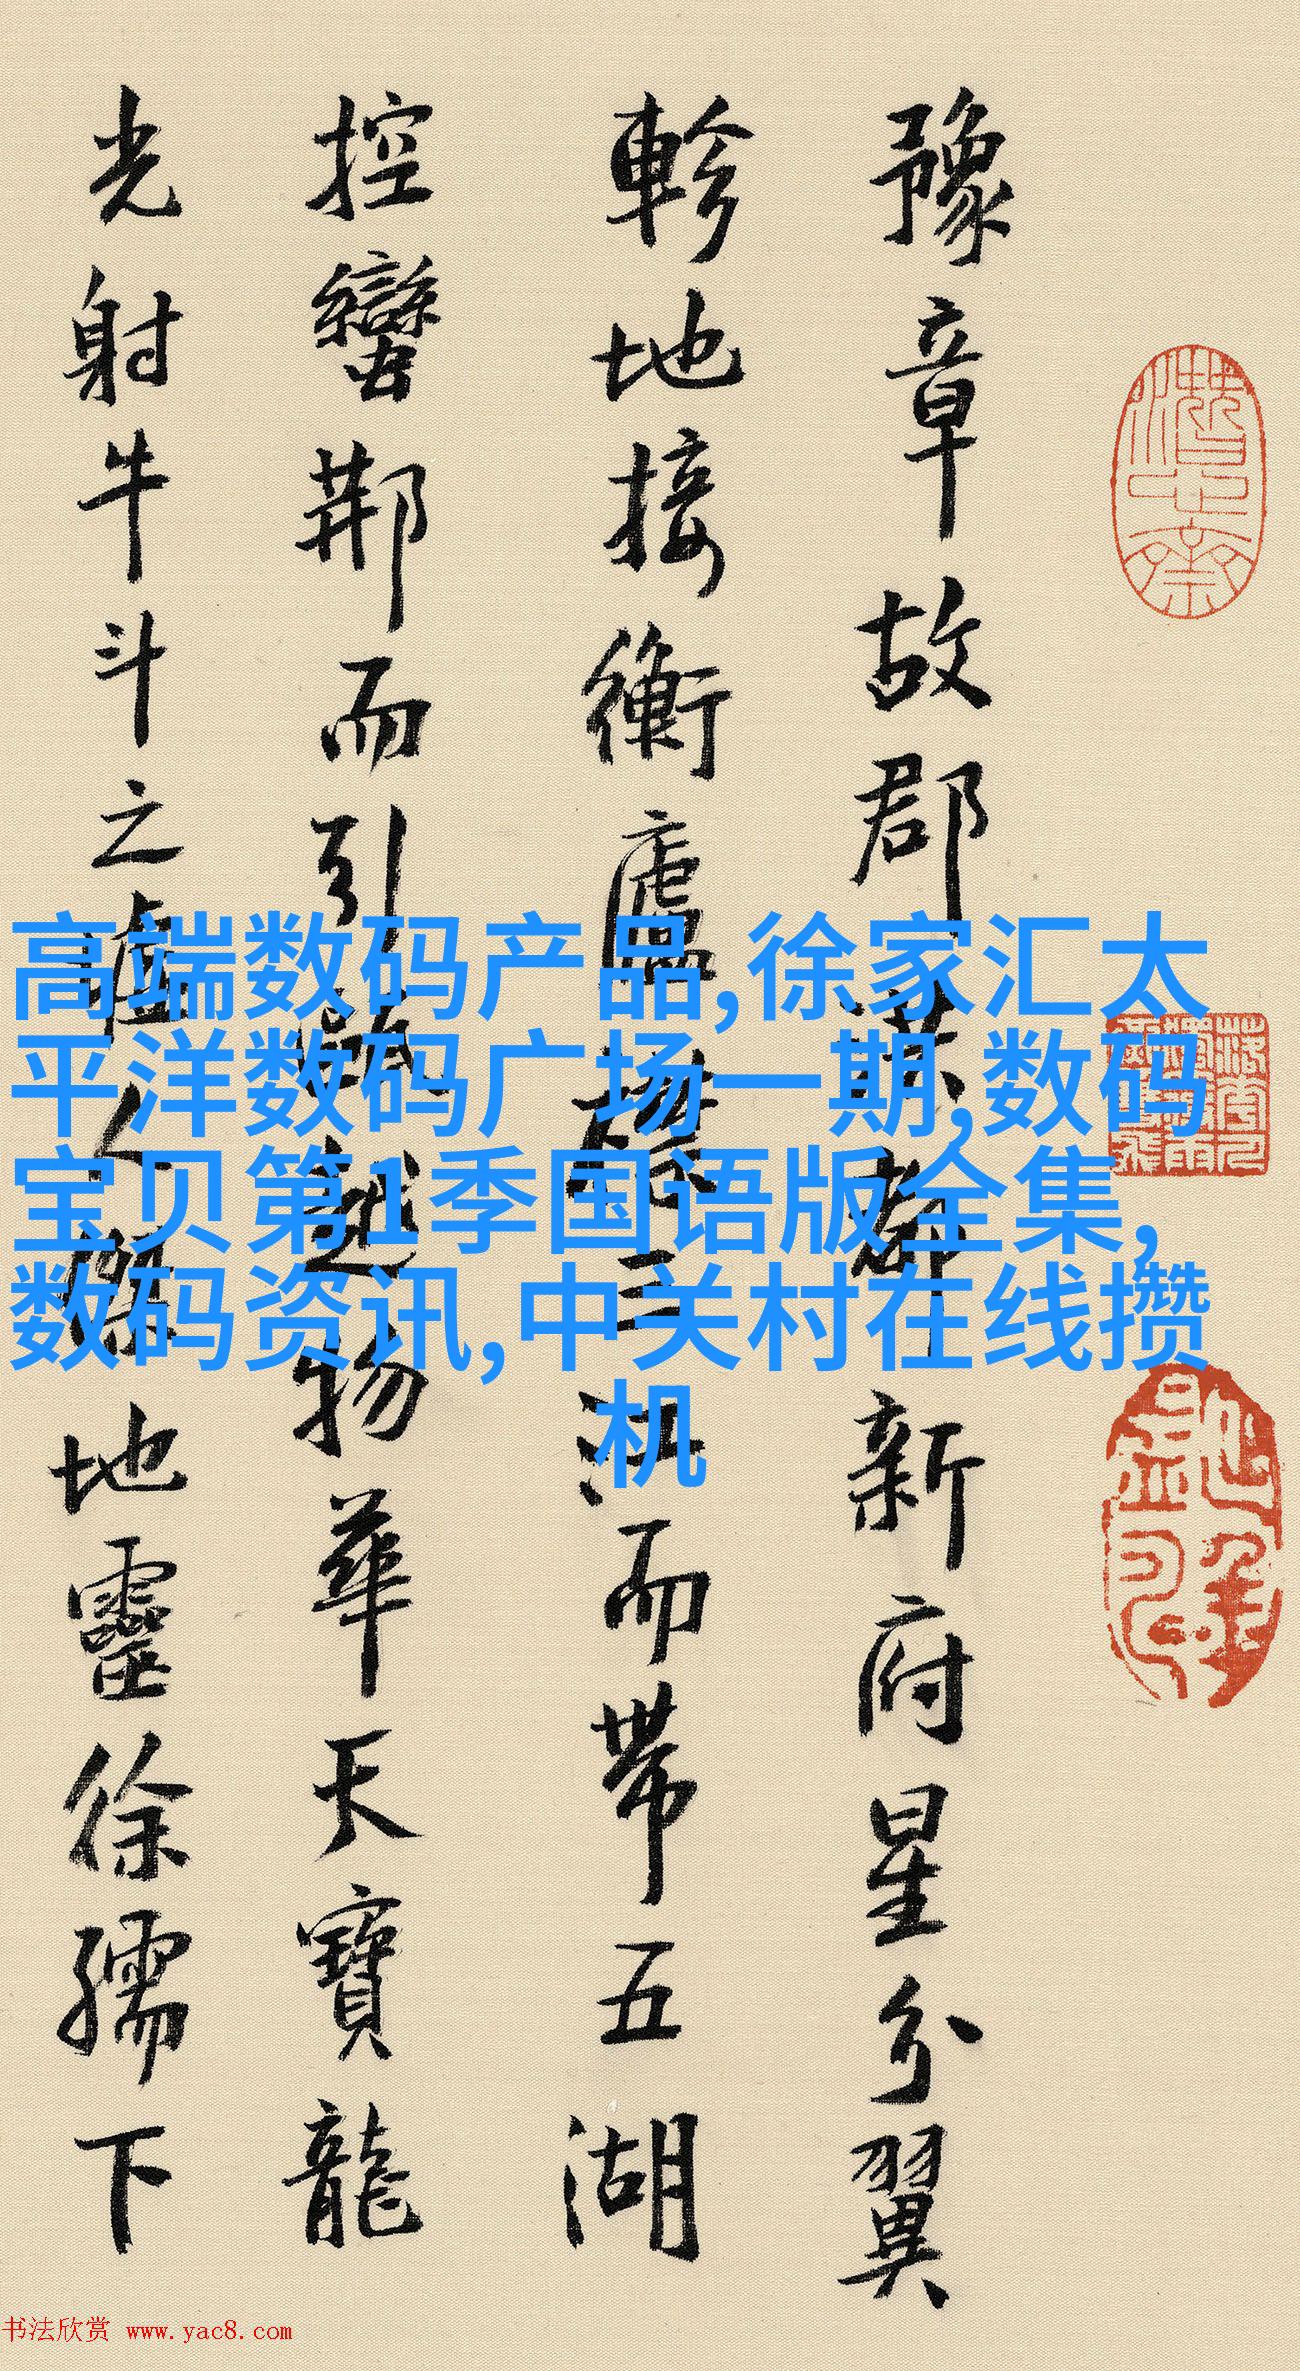 豫章故郡洪都新府星分翼
軫地接衡廬襟三江而帶五湖
控蠻荆而引甌越物華天寶龍
光射牛斗之墟人傑地靈徐孺下
高端数码产品,徐家汇太
平洋数码广场一期,数码
宝贝第1季国语版全集,
数码资讯,中关村在线攒
机
书法欣赏 www.yac8.com